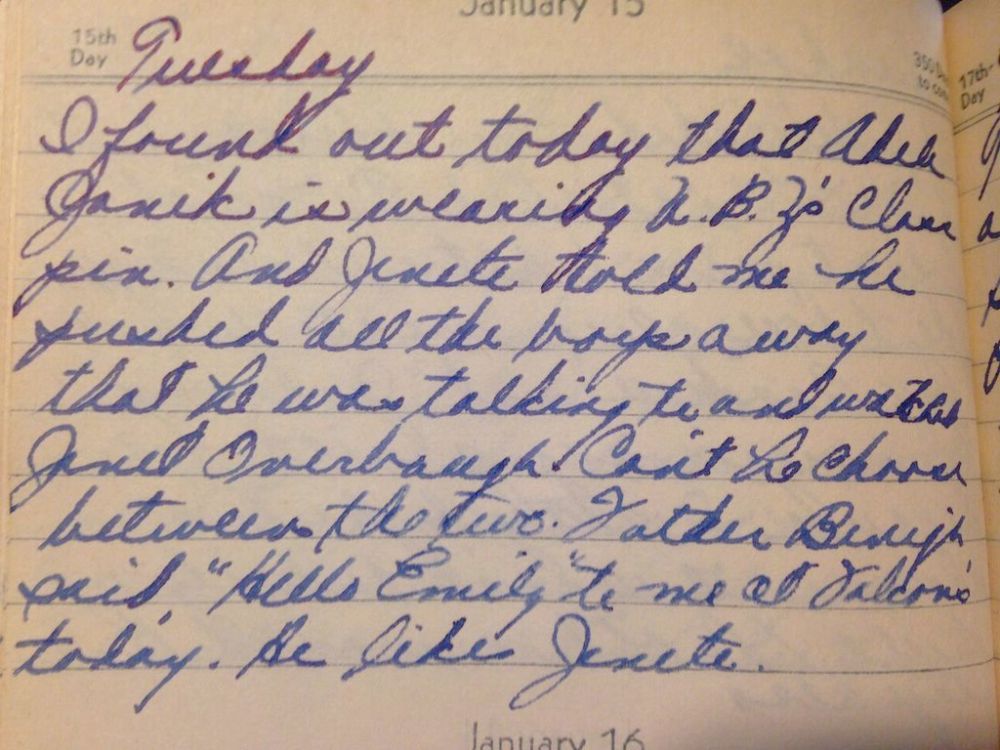 January 15
15th
Day
Tuesday
350 Days
to come
17th
Day
I found out today that Adele
Janik is wearing N. B. Z's Class
pin. And Jenete told me he
pushed all the boys away
that he was talking to and watched
Janet Overbaugh. Can't he choose
between the two. Father Benigh
said, "Hello Emily" to me at
today. He likes Jenete.
January 16